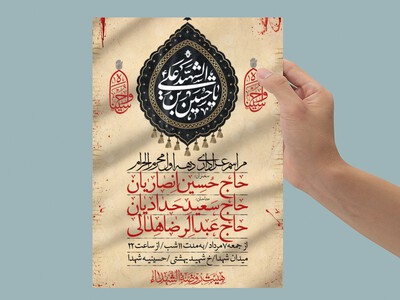 یا حسین بن علی الشهید
مراسم عزاداری دهه اول محرم الحرام
سخنران:
حاج حسین انصاریان
مداحان:
حاج سعید حدادیان
حاج عبدالرضا هلالی
از جمعه ۷ مرداد / به مدت ۱۱ شب / از ساعت ۲۲
میدان شهدا / خ شهید بهشتی / حسینیه شهدا